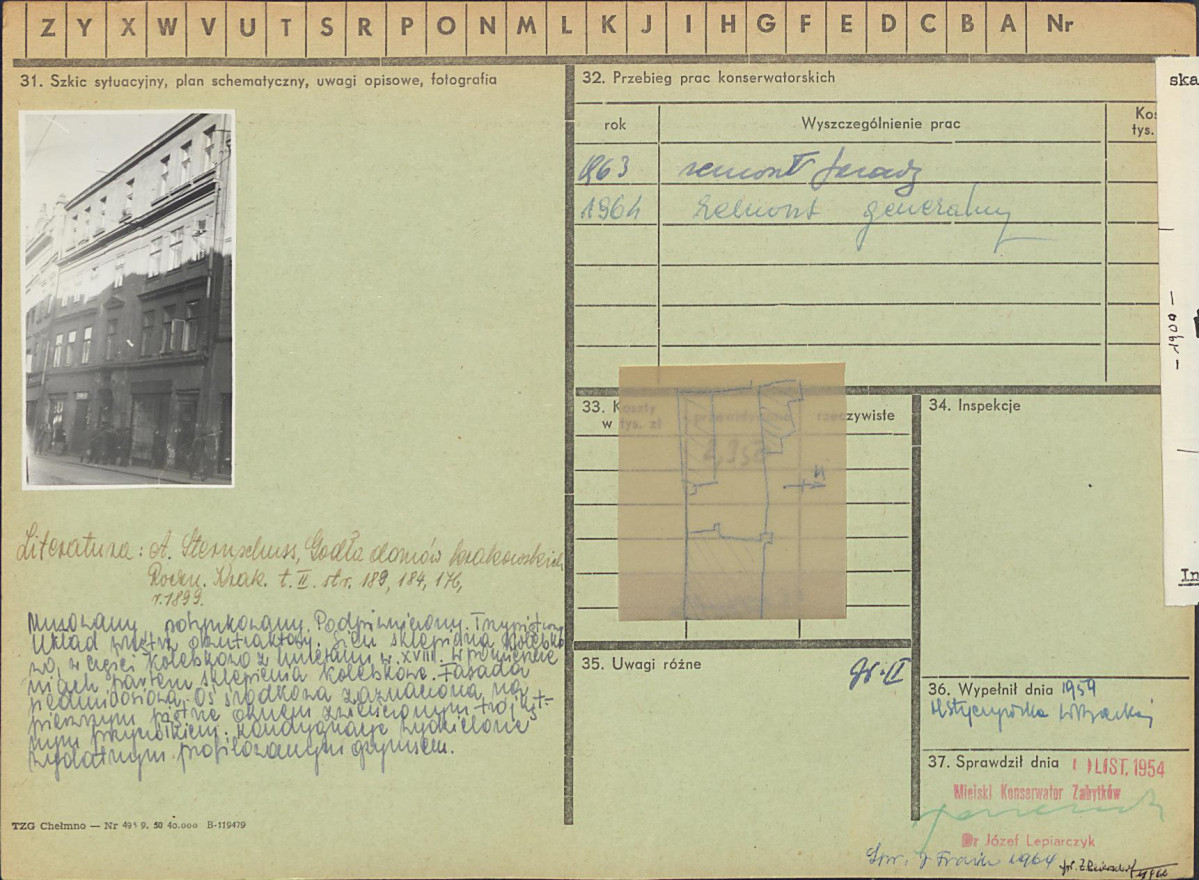 Z Y X W V U T S R P O N M L K J I H G F E D C B A Nr
31. Szkic sytuacyjny, plan schematyczny, uwagi opisowe, fotografia
Literatura: A. Sternschuss, Godła domów krakowskich
Roczn. Krak. t. II. str. 189, 184, 176,
r. 1899.
Murowany, potynkowany. Podpiwniczony.
Układ wnętrz Sień sklepiona kolebko
wo, w części kolebkowo z lunetami w. XVIII. w
parteru sklepienia kolebkowe. Fasada
siedmioosiowa, oś środkowa zaznaczona na
pierwszym piętrze oknem zwieńczonym trójkąt-
nym przyczółkiem. Kondygnacje wydzielone
wydatnym profilowanym gzymsem.
TZG Chełmno — Nr 9. 58 40.000 B-119479
32. Przebieg prac konserwatorskich
rok Wyszczególnienie prac
tys.
1963 remont
1964 Remont generalny
33. Koszty
w tys. zł
rzeczywiste
34. Inspekcje
35. Uwagi różne
gr. II
36. Wypełnił dnia 1959
37. Sprawdził dnia LIST. 1954
Miejski Konserwator Zabytków
Dr Józef Lepiarczyk
1964
ska
— 1900 —
In